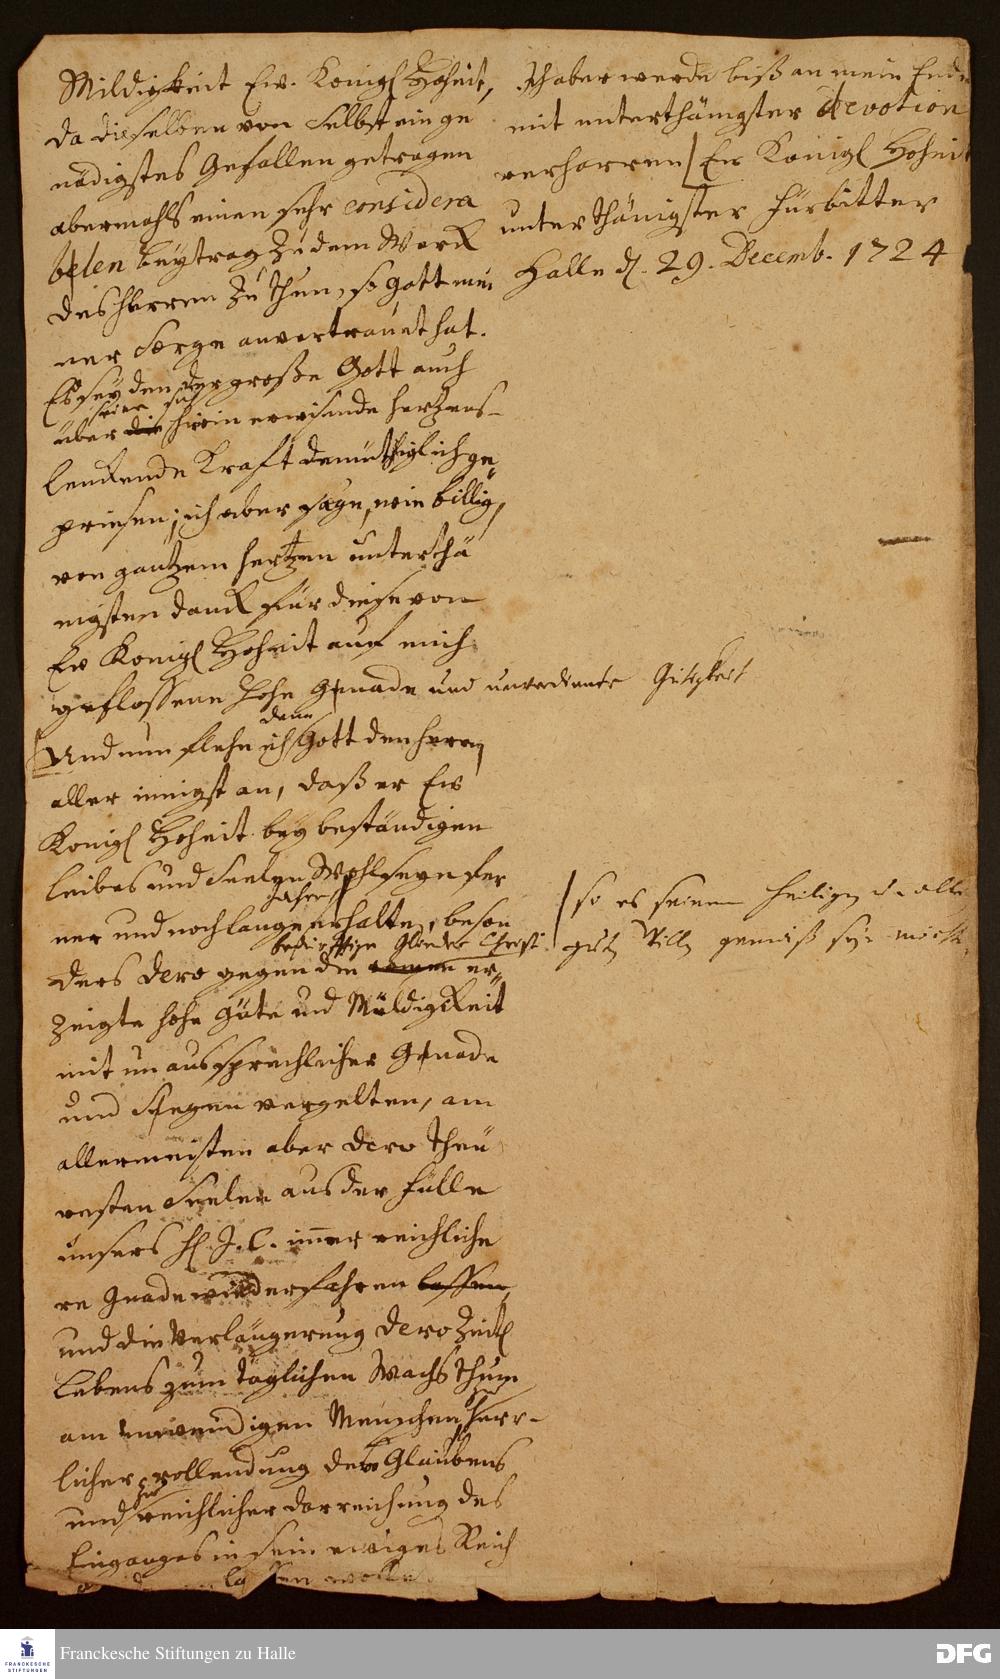 Mildigkeit Ew. Königl Hoheit,
da dieselben von selbst ein ge
nädigstes Gefallen getragen
abermahls einen sehr considera
belen beytrag zu dem Werck
des Herren zu thun, so Gott mei
ner Sorge anvertrauet hat.
Es sey den der große Gott auch
seine sich
über die hierin erweisende hertzens-
lenckende Kraft demüthiglich ge
priesen; ich aber sage, wie billig,
von gantzem hertzen unterthä
nigsten danck für diese von
Ew Königl Hoheit auf mich
geflossene hohe Gnade und unverdiente Gütigkeit
denn
Und nun flehe ich Gott den herrn
aller innigst an, daß er Ew
Königl Hoheit bey beständigen
leibes und Seelen Wohlseyn fer
Jahre
ner und noch lange erhalte, beson
bedürfftige Glieder Christi
ders dero gegen die armen er-
zeigte hohe Güte und Mildigkeit
mit unaussprechlicher Gnade
und Segen vergelten, am
allermeisten aber dero theu
resten Seelen aus der Fülle
unsers H. J. C. immer reichliche
re Gnade wiederfahren lassen,
und die Verlängerung dero Zeitl
Lebens zum täglichen Wachsthum
am inwendigen Menschen, herr-
licher vollendung des Glaubens
zur
und reichlicher darreichung des
Einganges in sein ewiges Reich
lassen wolle.
Ich aber werde biß an mein Ende
mit unterthänigster devotion
verharren / Ew Königl Hoheit
unterthänigster Fürbitter
Halle d. 29. Decemb. 1724
so es seinem heiligen u. alle
gut Willen gemäß seyn möchte
Franckesche Stiftungen zu Halle
FRANCKESCHE
STIFTUNGEN
DFG